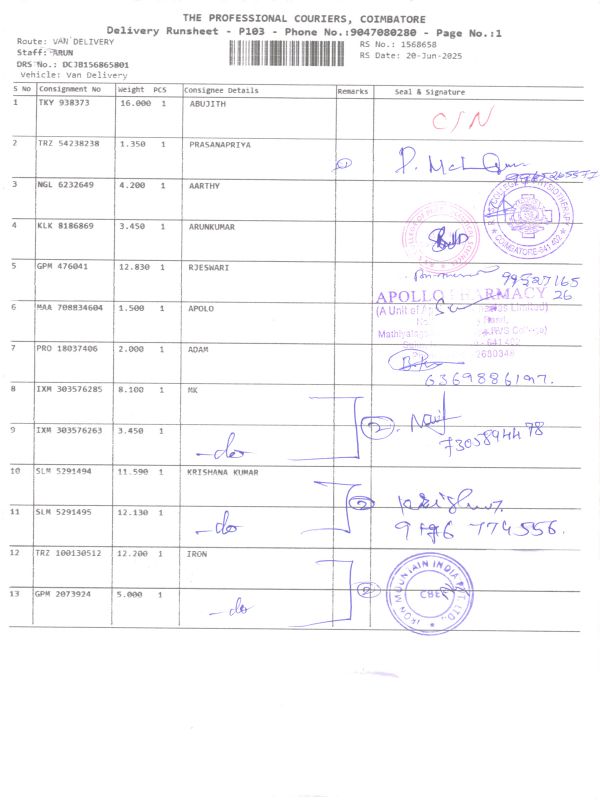 THE PROFESSIONAL COURIERS, COIMBATORE
Delivery Runsheet - P103 - Phone No.:9047080280 - Page No.:1
Route: VAN DELIVERY
RS No.: 1568658
Staff: ARUN
RS Date: 20-Jun-2025
DRS No.: DCJB156865801
Vehicle: Van Delivery
S No Consignment No Weight PCS Consignee Details Remarks Seal & Signature
1 TKY 938373 16.000 1 ABUJITH C/N
2 TRZ 54238238 1.350 1 PRASANAPRIYA
3 NGL 6232649 4.200 1 AARTHY
COIMBATORE-641 402
4 KLK 8186869 3.450 1 ARUNKUMAR
5 GPM 476041 12.830 1 RJESWARI
9952716526
APOLLO PHARMACY
6 MAA 708834604 1.500 1 APOLO
7 PRO 18037406 2.000 1 ADAM
6369886197.
8 IXM 303576285 8.100 1 MK
9 IXM 303576263 3.450 1 -do 2
7305894478
10 SLM 5291494 11.590 1 KRISHANA KUMAR 2
11 SLM 5291495 12.130 1 -do
774556.
12 TRZ 100130512 12.200 1 IRON
IRON MOUNTAIN INDIA PVT. LTD.
13 GPM 2073924 5.000 1 -do 2